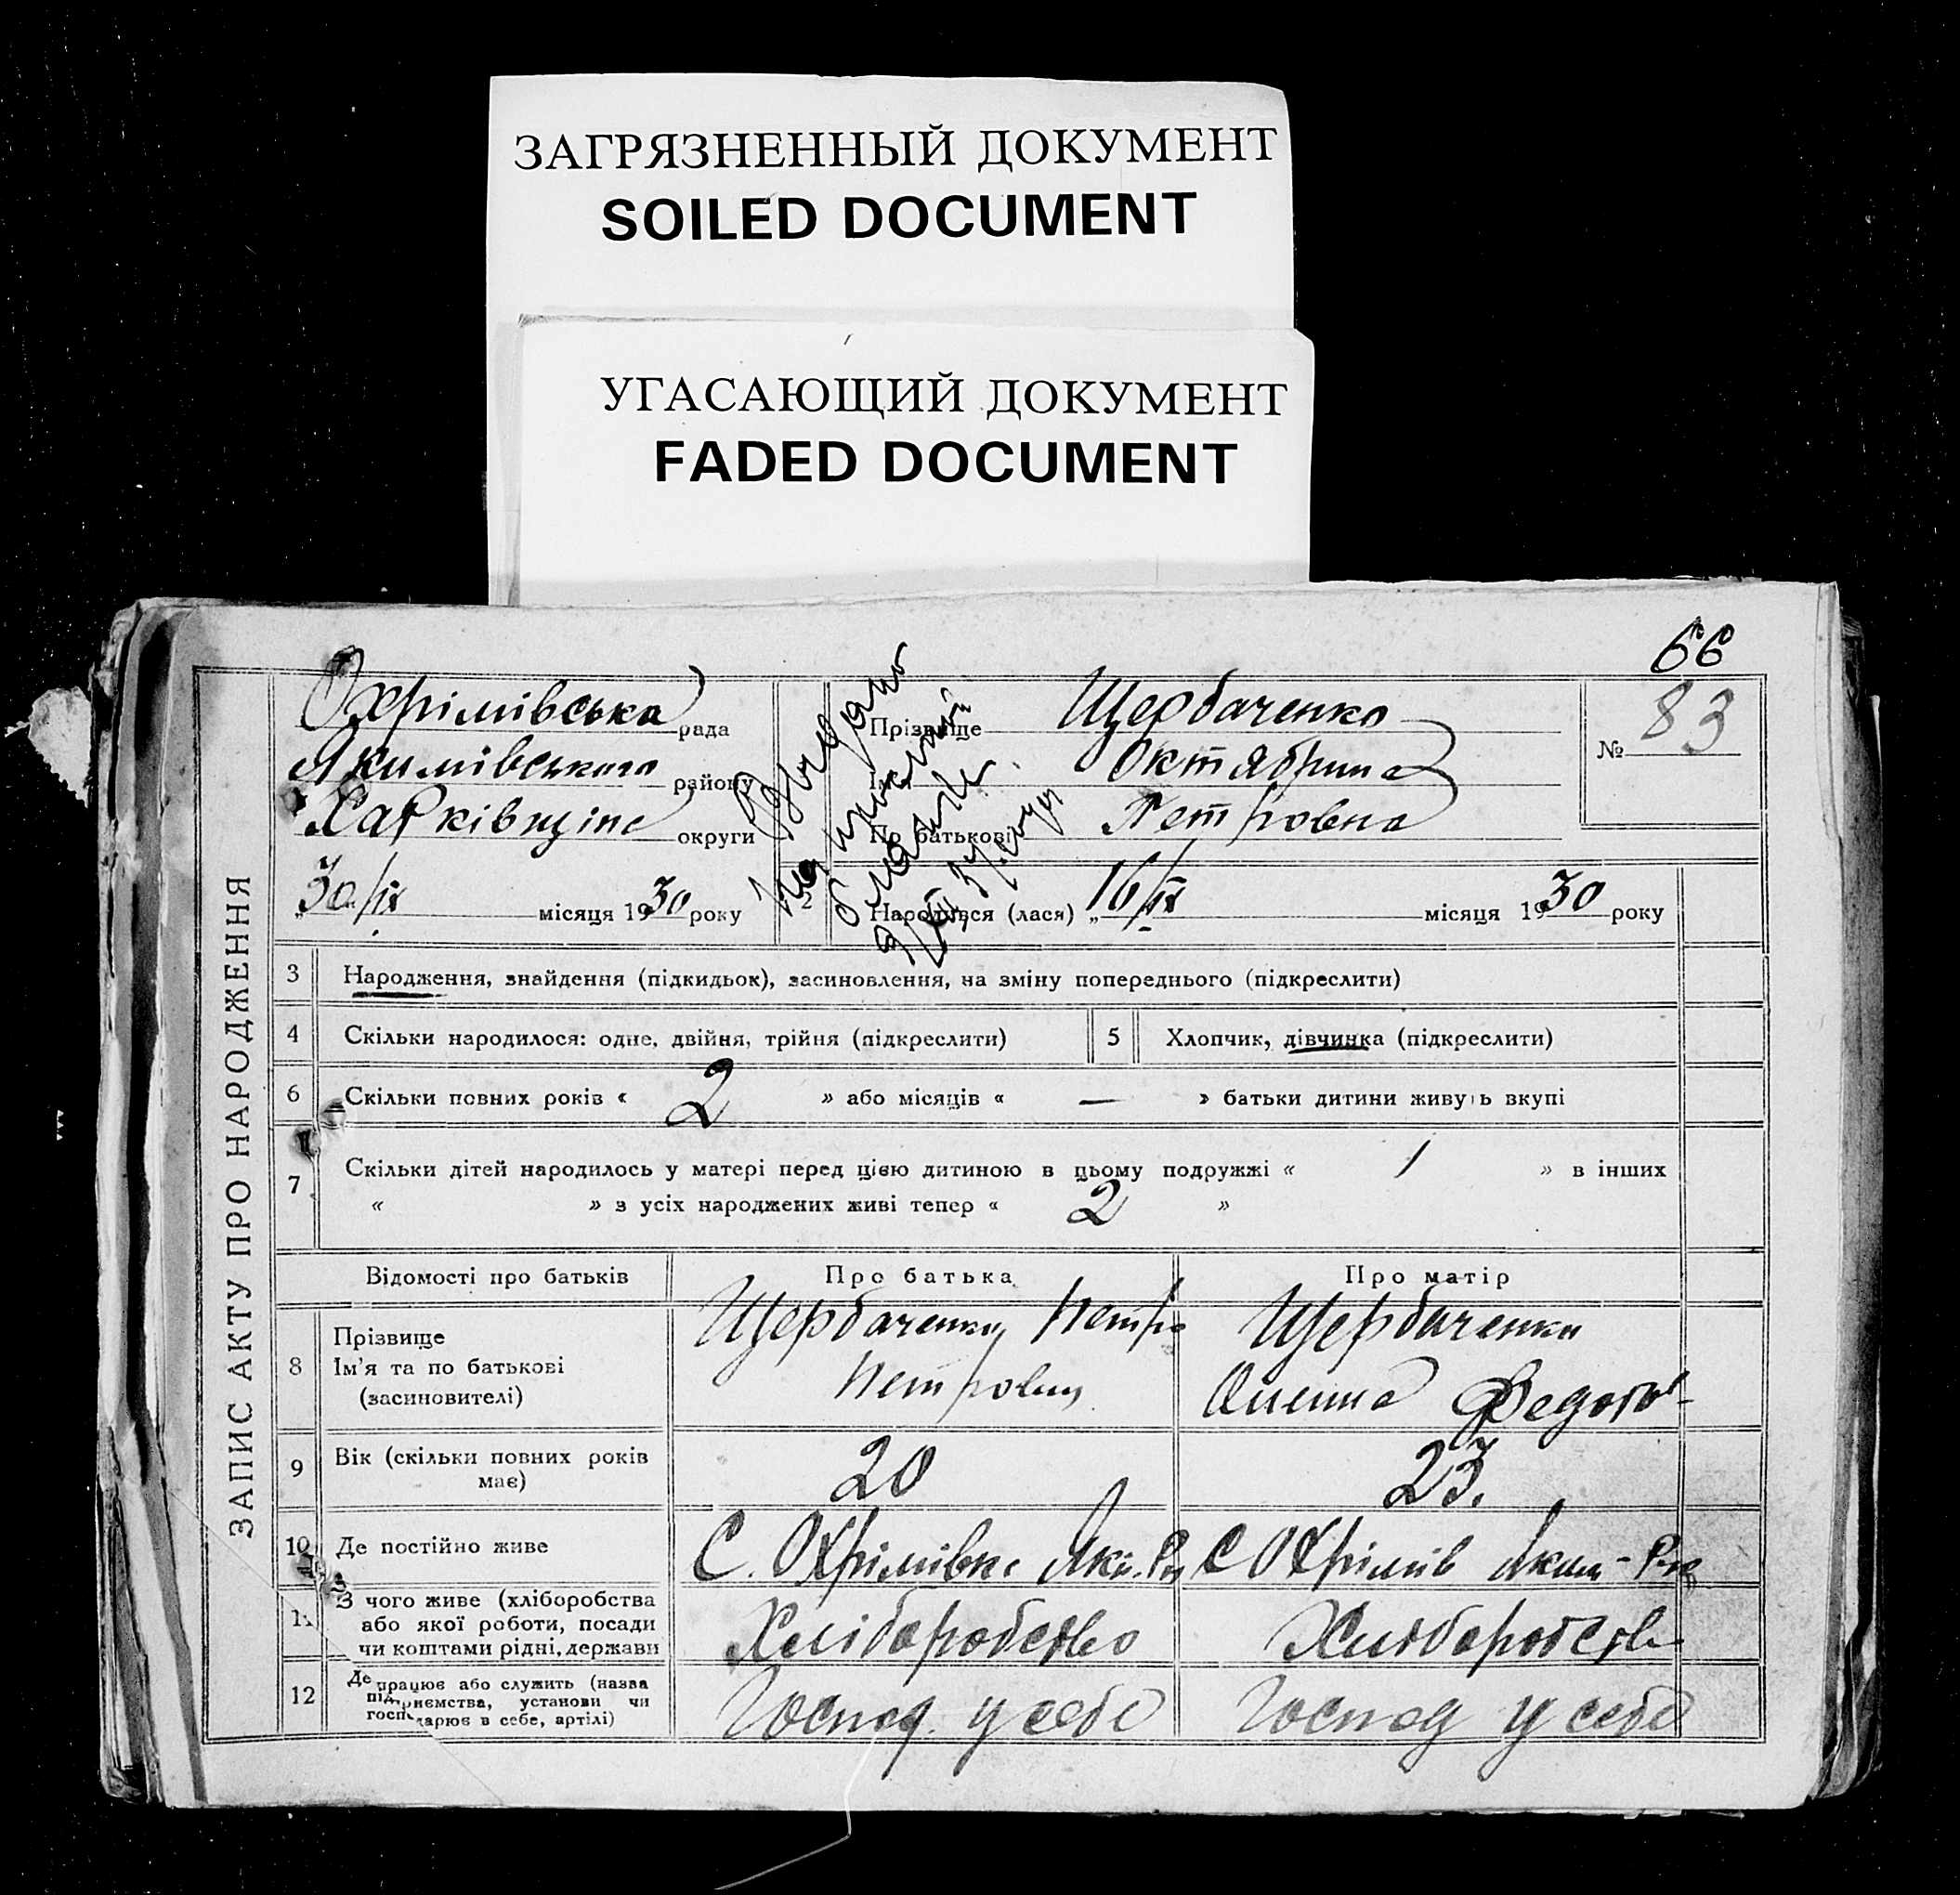 ЗАГРЯЗНЕННЫЙ ДОКУМЕНТ
SOILED DOCUMENT
УГАСАЮЩИЙ ДОКУМЕНТ
FADED DOCUMENT
66
ЗАПИС АКТУ ПРО НАРОДЖЕННЯ
Охрімівська рада
Якимівського району
Харківщіна округи
30/ІХ місяця 1930 року
Видано
Прізвище Щербаченко
Октябрина
По батькові Петровна
№ 83
2
Народився (лася) „16/ІХ місяця 1930 року
3 Народження, знайдення (підкидьок), засиновлення, на зміну попереднього (підкреслити)
4 Скільки народилося: одне, двійня, трійня (підкреслити)
5 Хлопчик, дівчинка (підкреслити)
6 Скільки повних років « 2 » або місяців « — » батьки дитини живуть вкупі
7 Скільки дітей народилось у матері перед цією дитиною в цьому подружжі « 1 » в інших
« » з усіх народжених живі тепер « 2 »
Відомості про батьків Про батька Про матір
8 Прізвище
Ім'я та по батькові
(засиновителі)
Щербаченко Петро
Петрович
Щербаченко
Федоров-
9 Вік (скільки повних років
має)
20
23.
10 Де постійно живе
С. Охрімівка Яки. Рн
С Охрімів Яким-Рна
11 З чого живе (хліборобства
або якої роботи, посади
чи коштами рідні, держави
Хліборобство
Хліборобство
12 Де працює або служить (назва
підприємства, установи чи
господарює в себе, артілі)
Господ. у себе
Господ у себе